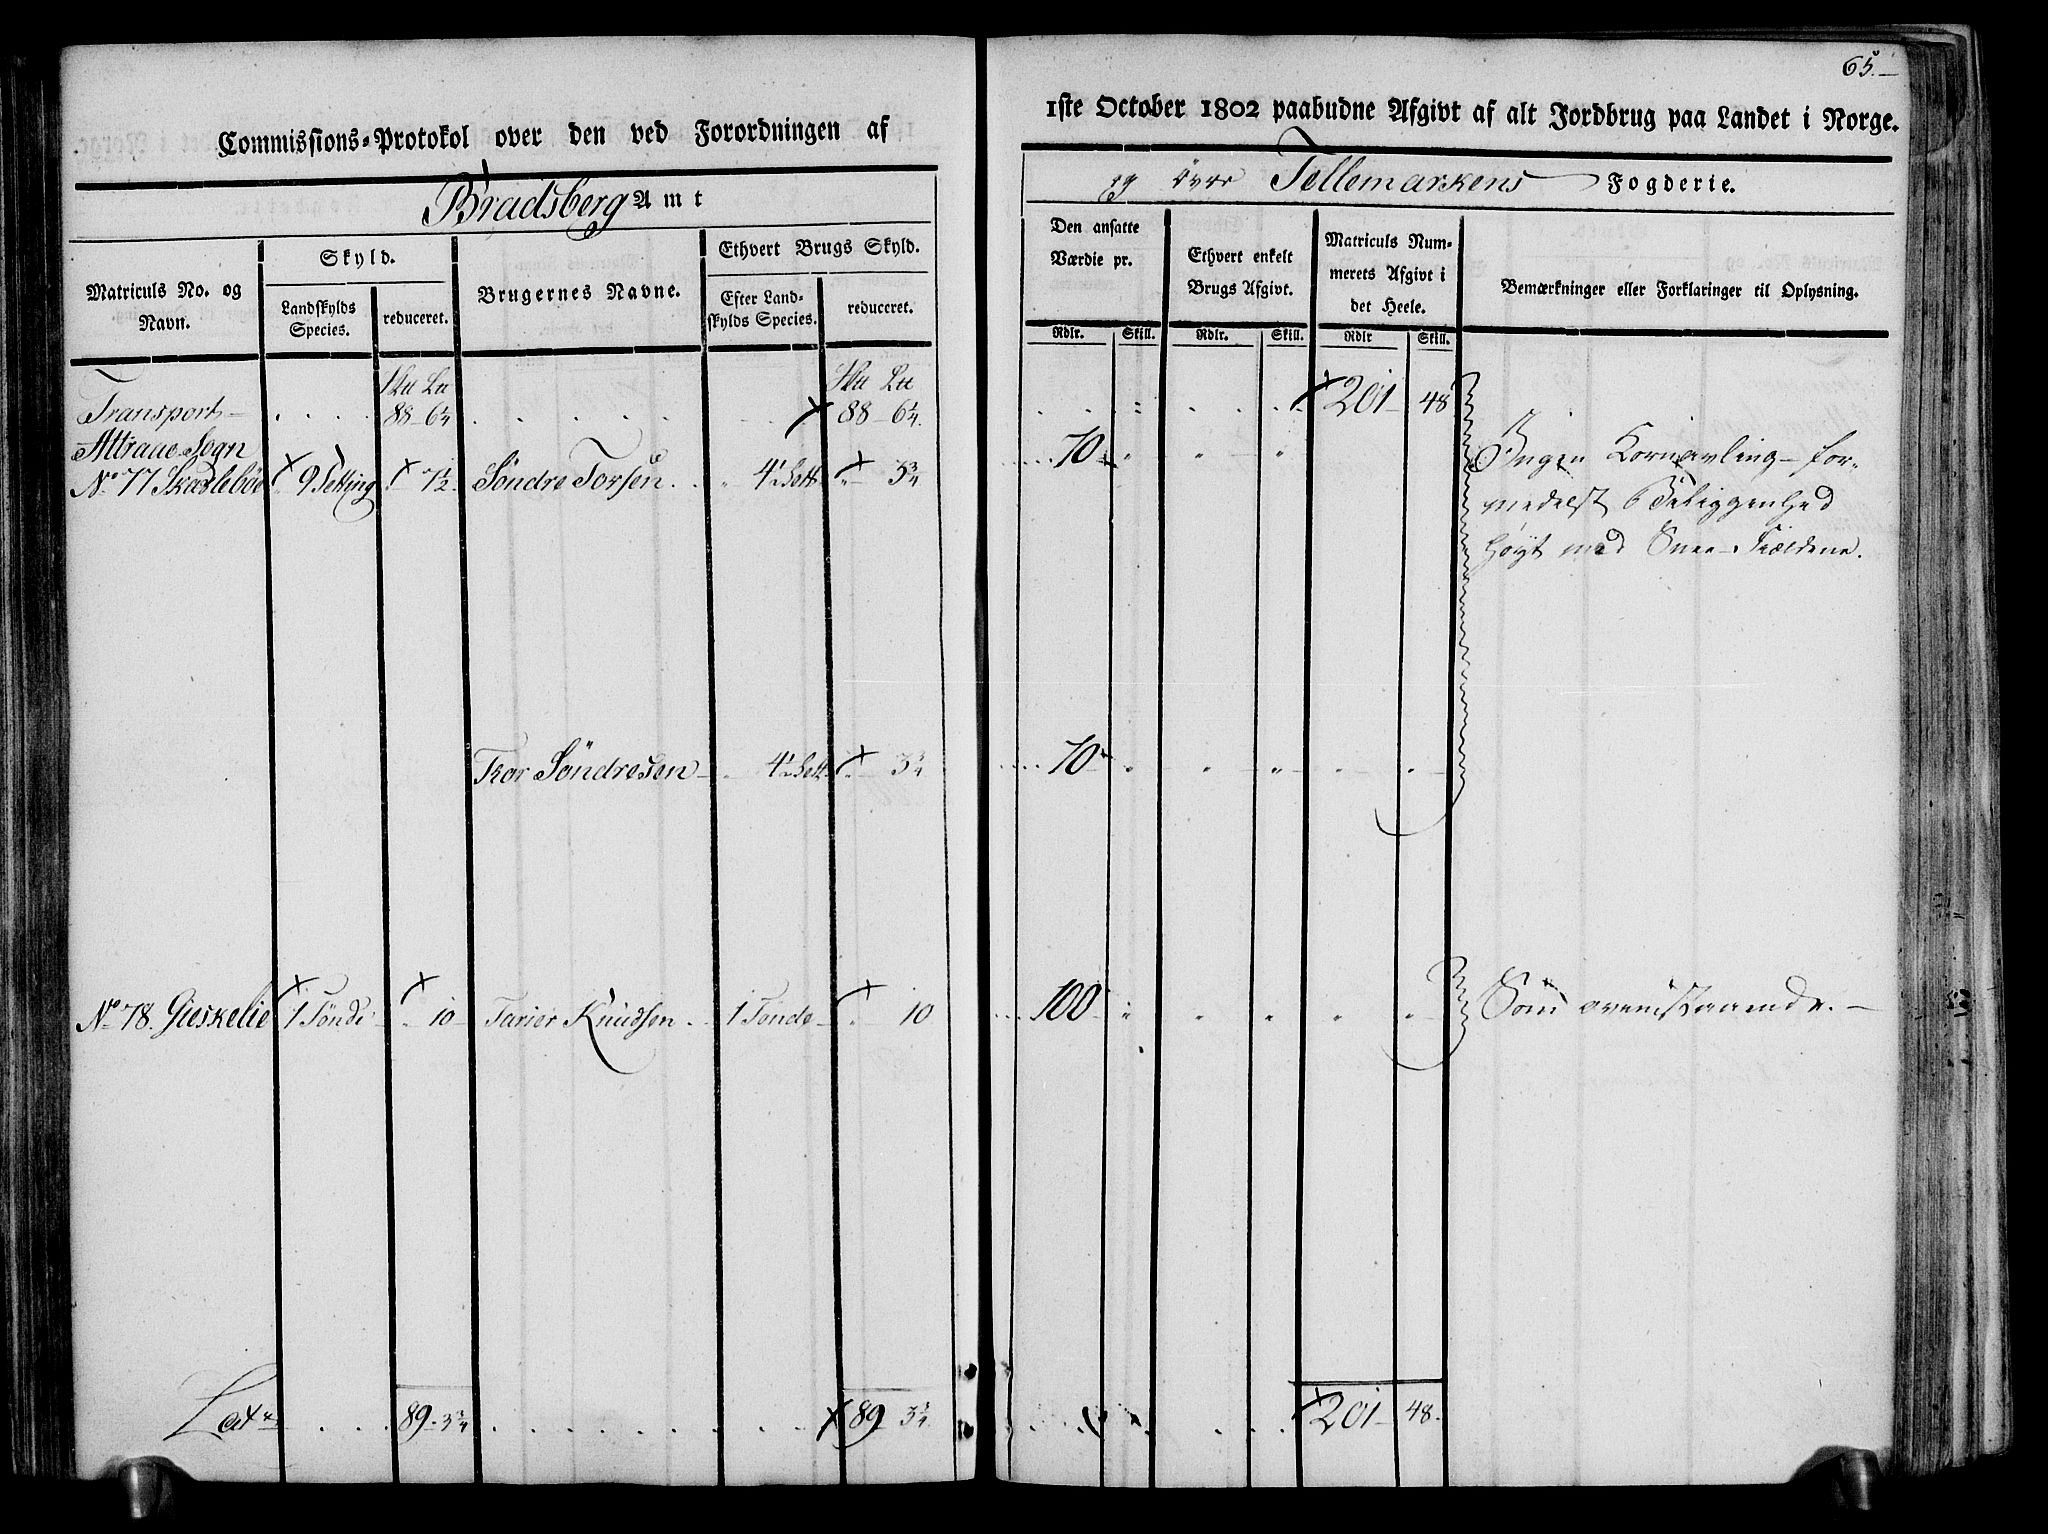 65.
Commissions-Protokol over den ved Forordningen af
1ste October 1802 paabudne Afgivt af alt Jordbrug paa Landet i Norge.
Bradsberg Amt
og övre Tellemarkens Fogderie.
Matriculs No. og Navn.
Skyld.
Landskylds Species.
reduceret.
Brugernes Navne.
Ethvert Brugs Skyld.
Efter Landskylds Species.
reduceret.
Den ansatte Værdie pr.
Rdlr. Skill.
Ethvert enkelt Brugs Afgivt.
Rdlr. Skill.
Matriculs Nummerets Afgivt i det Heele.
Rdlr Skill.
Bemærkninger eller Forklaringer til Oplysning.
Transport 88 - 6 1/4 88 - 6 1/4. 201 48
Attraae Sogn
No 77 Skarlebøe 9 Setting 7 1/2. Söndre Torsen 4 1/2 Sett 3 3/4 70
Ingen Kornavling for-
medelst Beliggenhed
høyt med Snee-Fieldene.
Thor Söndresen 4 1/2 Sett 3 3/4 70
No 78. Gieskelie 1 Tönde 10 Tarier Knudsen 1 Tönde 10 100 Som ovenstaaende.
Lat 89 - 3 3/4 89 3 3/4 201 48.